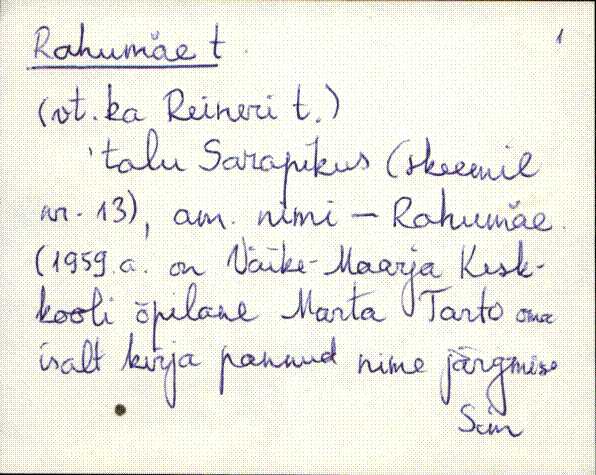 Rahumäe t. 1
(vt. ka Reineri t.)
'talu Sarapikus (skeemil
nr. 13), am. nimi – Rahumäe.
(1959.a. on Väike-Maarja Kesk-
kooli õpilane Marta Tarto oma
isalt kirja pannud nime järgmise